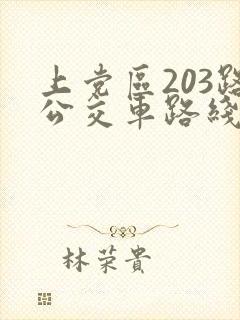 上党區203路
公交車路綫
林荣貴